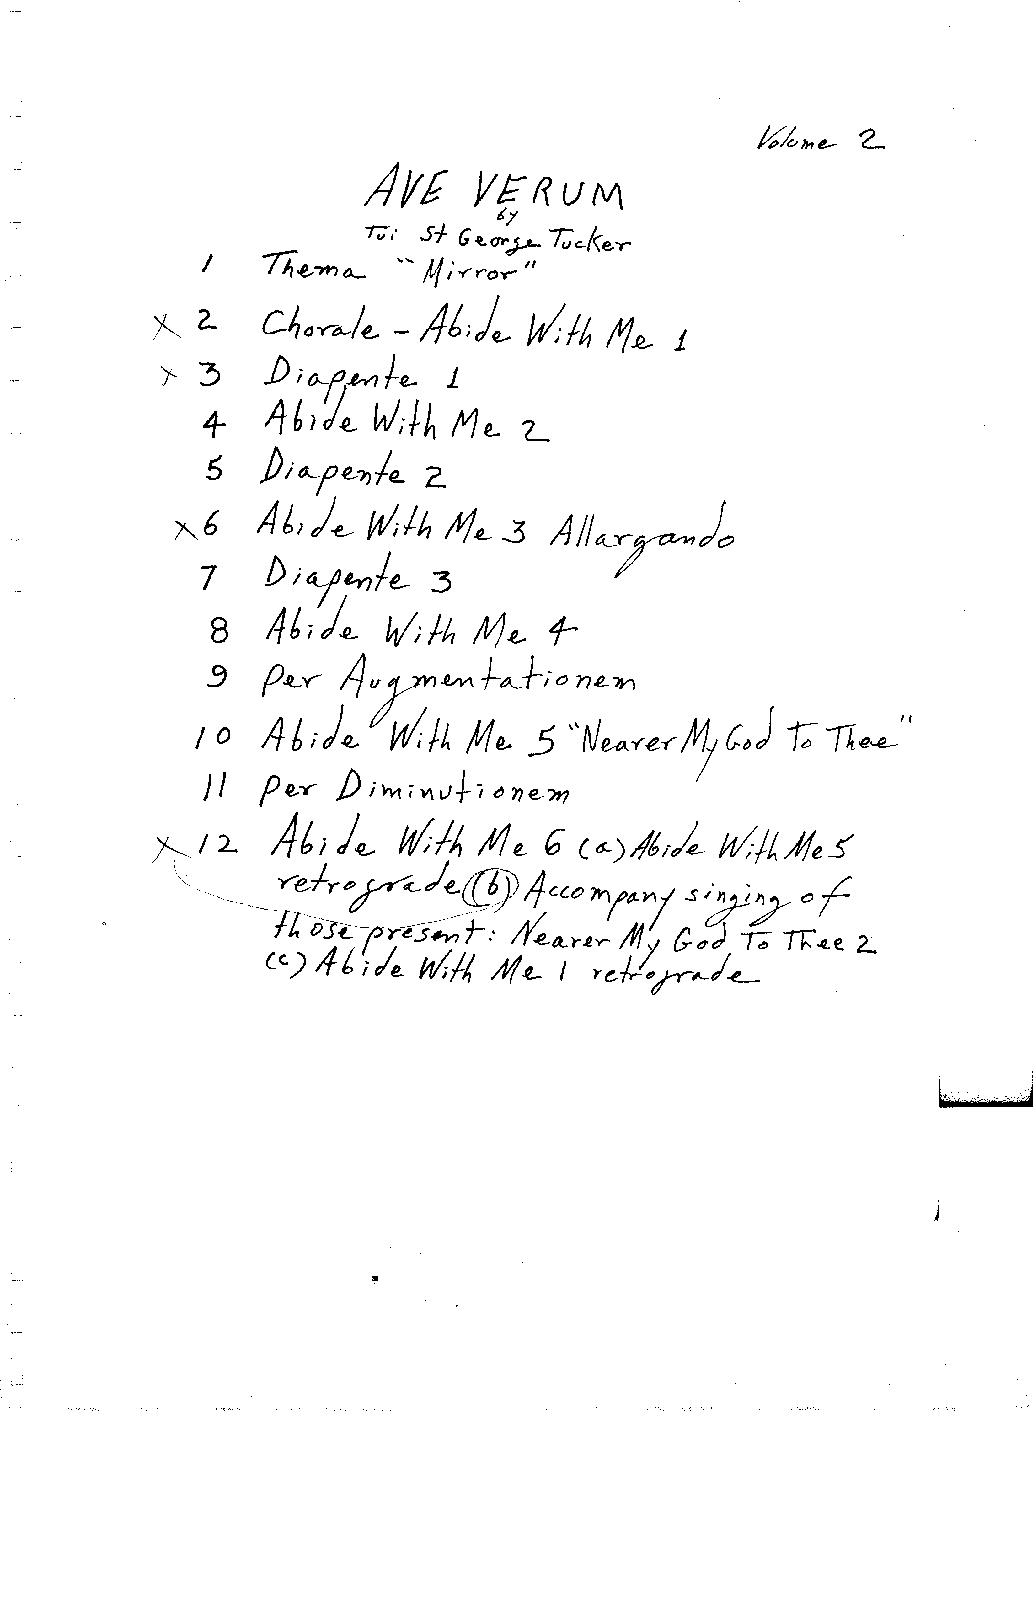 Volume 2
AVE VERUM
by
Tui St George Tucker
1 Thema "Mirror"
x 2 Chorale - Abide With Me 1
x 3 Diapente 1
4 Abide With Me 2
5 Diapente 2
x 6 Abide With Me 3 Allargando
7 Diapente 3
8 Abide With Me 4
9 per Augmentationem
10 Abide With Me 5 "Nearer My God To Thee"
11 per Diminutionem
x 12 Abide With Me 6 (a) Abide With Me 5
retrograde (b) Accompany singing of
those present: Nearer My God To Thee 2
(c) Abide With Me 1 retrograde